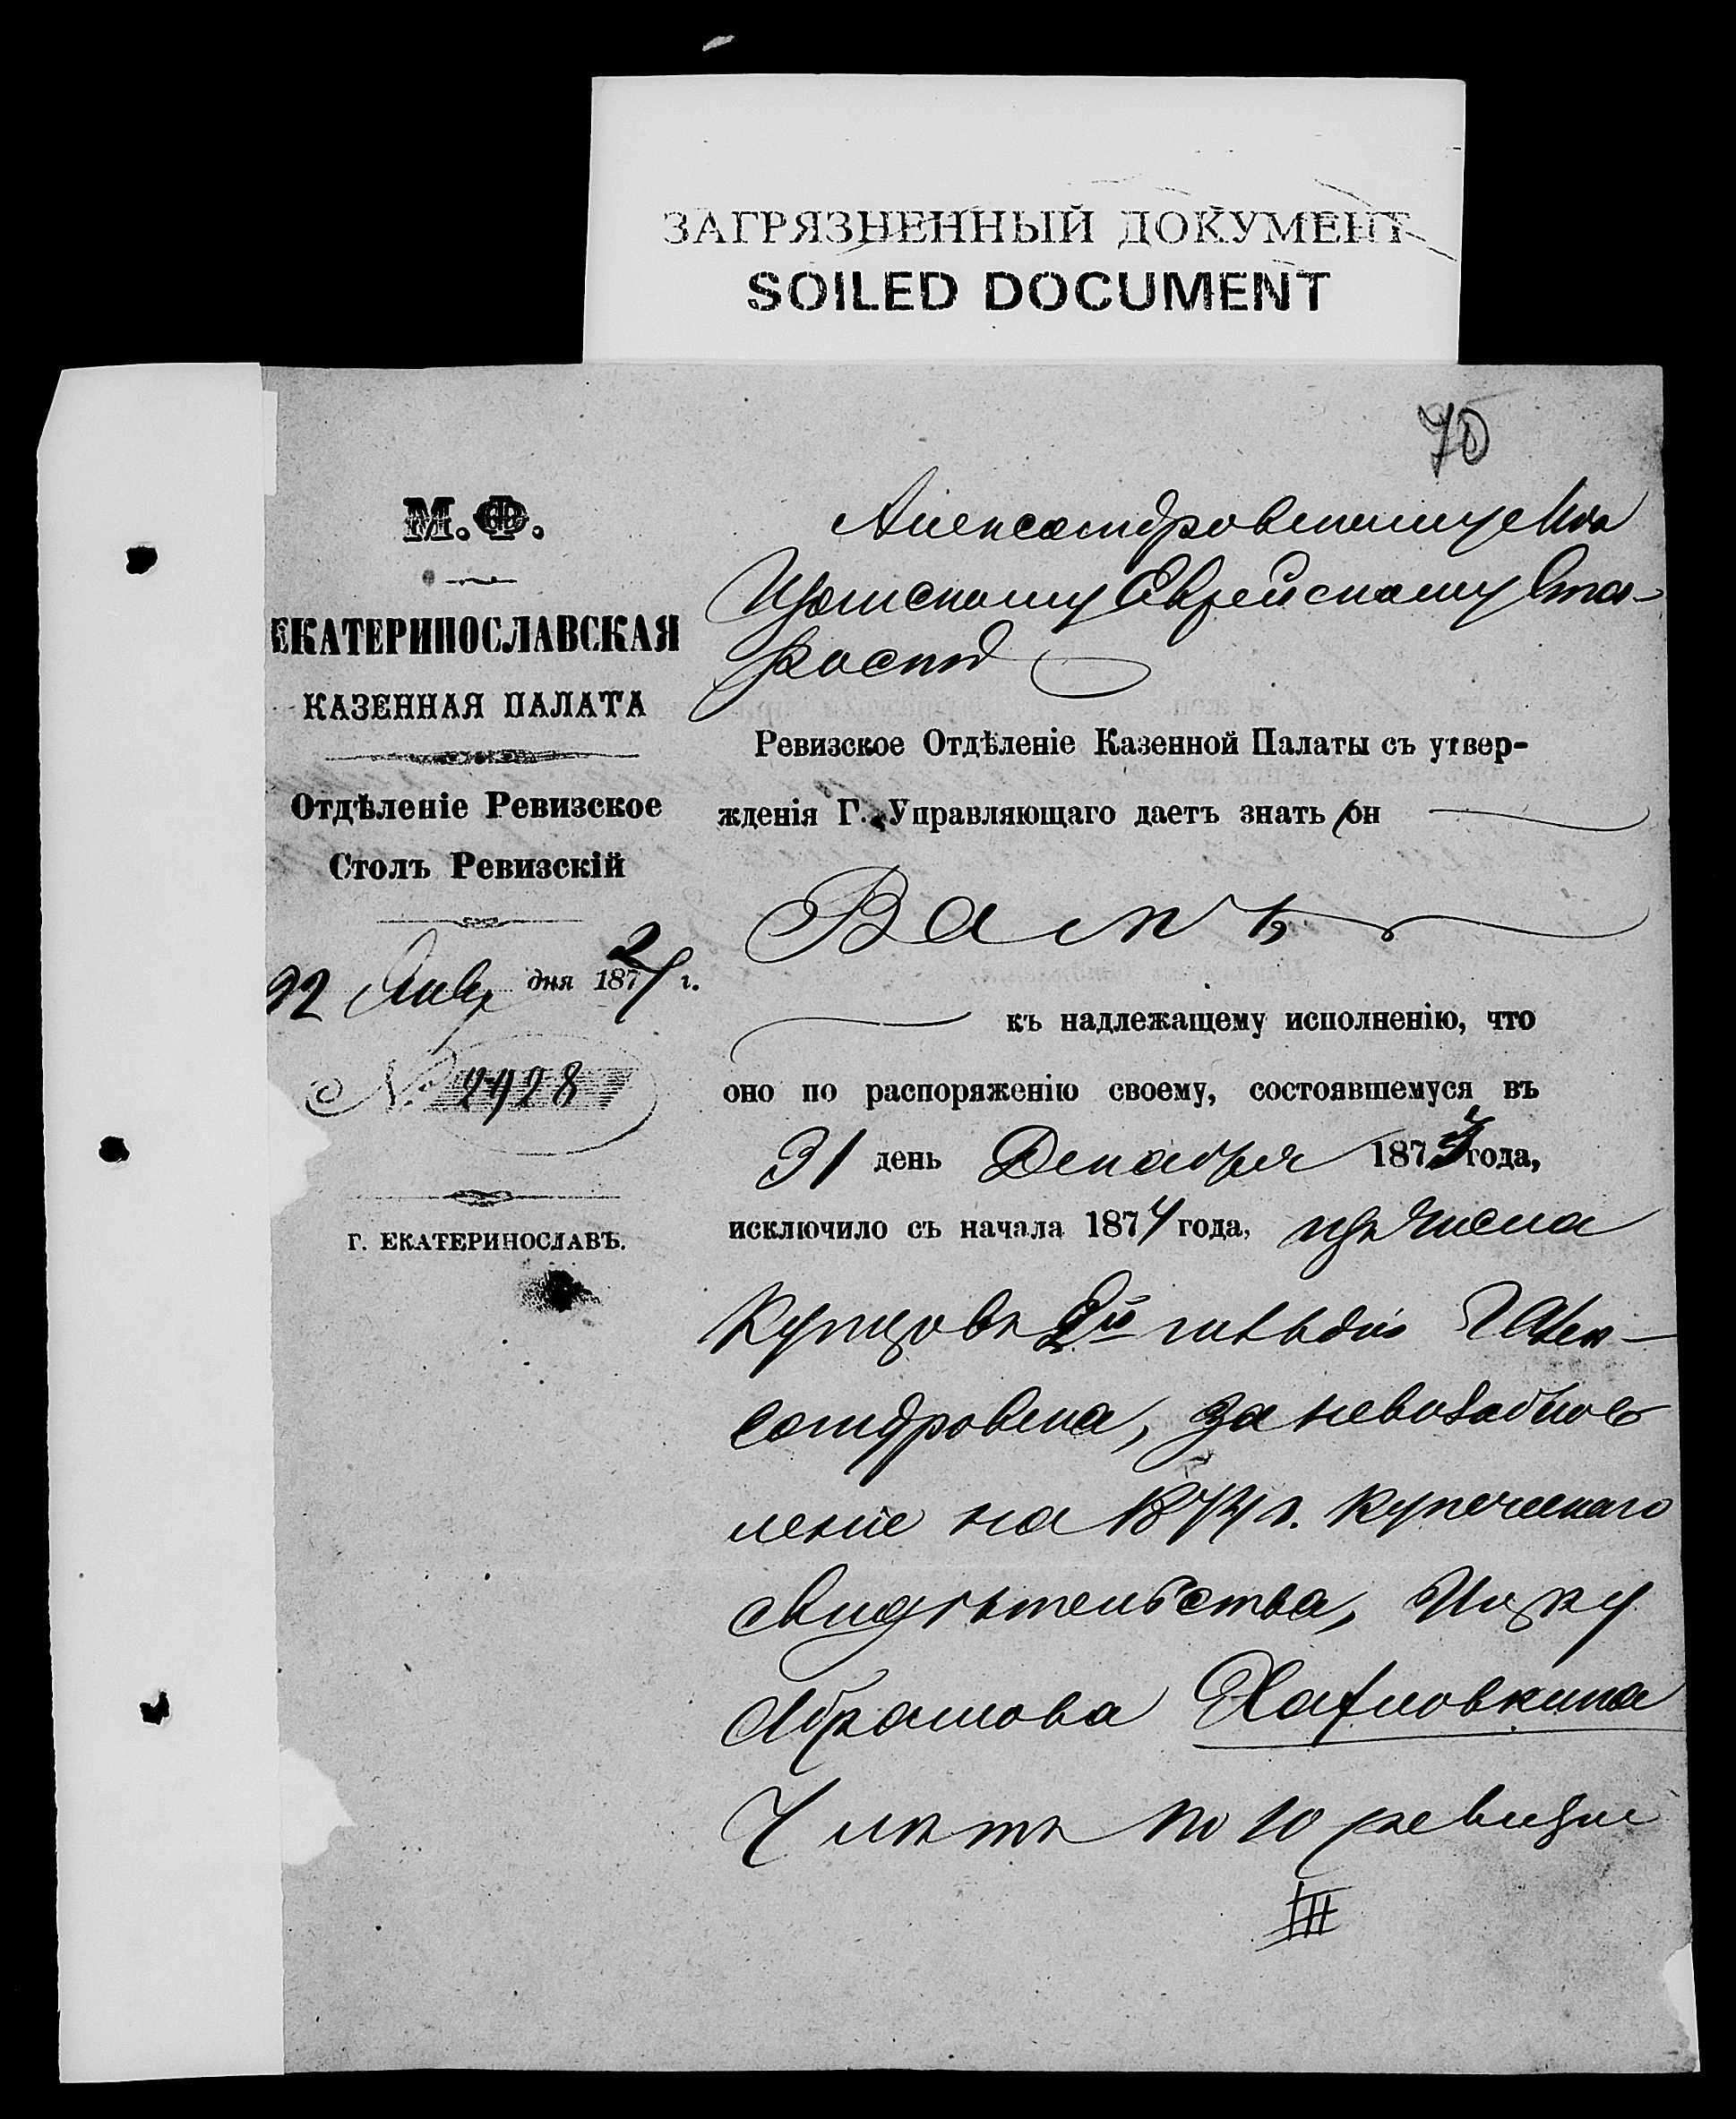 ЗАГРЯЗНЕННЫЙ ДОКУМЕНТ
SOILED DOCUMENT
70
М.Ф.
ЕКАТЕРИНОСЛАВСКАЯ
КАЗЕННАЯ ПАЛАТА
Отдѣленіе Ревизское
Столъ Ревизскій
22 Янв дня 1874 г.
№ 2928
Г. ЕКАТЕРИНОСЛАВЪ.
Александровскому Мѣ
щанскому Еврейскому Ста-
ростѣ
Ревизское Отдѣленіе Казенной Палаты съ утвер-
жденія Г. Управляющаго даетъ знать он
Вамъ
къ надлежащему исполненію, что
оно по распоряженію своему, состоявшемуся въ
31 день Декабря 1873 года,
исключило съ начала 1874 года, изъ числа
Купцовъ 2й гильдіи г. Алек-
сандровска, за невозобнов
леніе на 1874 г. купеческаго
свидѣтельства, Ицку
Абрамова
лѣтъ по 10 ревизіи